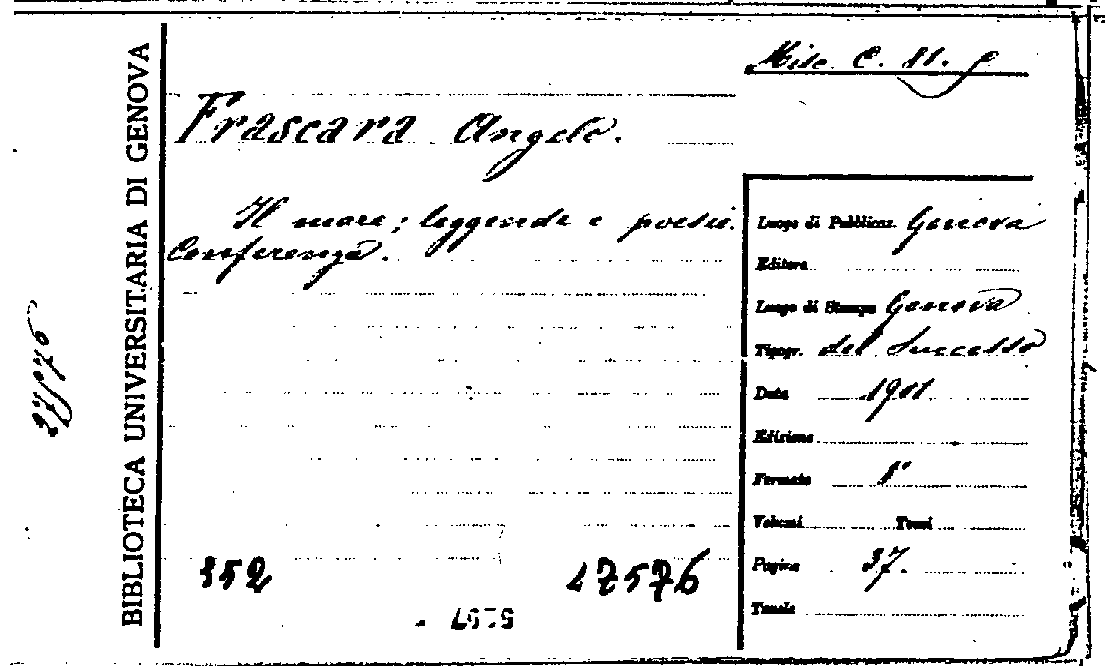 BIBLIOTECA UNIVERSITARIA DI GENOVA
Misc. C. 81.
Frascara Angelo.
Il mare; leggende e poesie.
Conferenza.
Luogo di Pubblicaz. Genova
Editore
Luogo di Stampa Genova
Tipogr. del Successo
Data 1901
Edizione
Formato 8°
Volumi Tomi
Pagine 37.
Tavole
352
27576